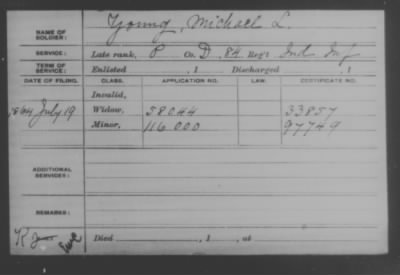 NAME OF SOLDIER: Young, Michael L.
SERVICE: Late rank, P Co. D, 84 Reg't Ind Inf
TERM OF SERVICE: Enlisted , 1 Discharged , 1
DATE OF FILING. CLASS. APPLICATION NO. LAW. CERTIFICATE NO.
Invalid,
1864 July 19 Widow, 58044 33857
Minor, 116 000 97749
ADDITIONAL SERVICES:
REMARKS:
Died , 1 , at